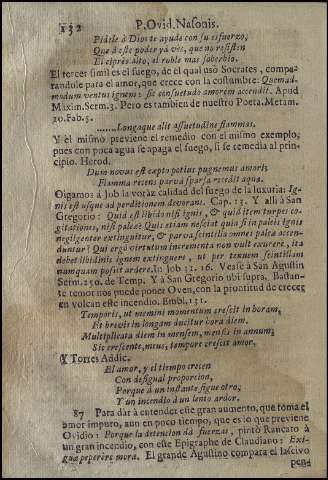 132 P. Ovid. Nasonis.
Pidele à Dios te ayude con su esfuerzo,
Que à este poder ya vès, que no resisten
El ciprès alto, el roble mas soberbio.
El tercer simil es el fuego, de el qual usò Socrates, compa-
randole para el amor, que crece con la costumbre: Quemad-
modum ventus ignem: sic consuetudo amorem accendit. Apud
Maxim. Serm. 3. Pero es tambien de nuestro Poeta. Metam.
10. Fab. 5.
.......Longaque alit assuetudine flammas.
Y èl mismo previene el remedio con el mismo exemplo,
pues con poca agua se apaga el fuego, si se remedia al prin-
cipio. Herod.
Dum novus est cæpto potius pugnemus amori;
Flamma recens parva sparsa recedit aqua.
Oigamos à Job la voràz calidad del fuego de la luxuria: Ig-
nis est usque ad perditionem devorans. Cap. 13. Y alli à San
Gregorio: Quid est libido nisi ignis, & quid item turpes co-
gitationes, nisi paleæ? Quis etiam nesciat quia si in paleis ignis
negligenter extinguitur, & parva scintilla omnes paleæ accen-
duntur? Qui ergò virtutum incrementa non vult exurere, ita
debet libidinis ignem extinguere, ut per tenuem scintillam
numquam possit ardere. In Job 31. 16. Vease à San Agustin
Serm. 250. de Temp. Y à San Gregorio ubi supra. Bastan-
te temor nos puede poner Oven, con la prontitud de crecer
en volcan este incendio. Embl. 131.
Temporis, ut memini momentum crescit in horam,
Et brevis in longam ducitur hora diem.
Multiplicata diem in mensem, mensis in annum;
Sic crescente, meus, tempore crescit amor.
Y Torres Addic.
El amor, y el tiempo crecen
Con desigual proporcion,
Porque à un instante sigue otro;
Y un incendio à un lento ardor.
87 Para dàr à entender este gran aumento, que toma el
amor impuro, aun en poco tiempo, que es lo que previene
Ovidio: Porque la detencion dà fuerzas, pintò Rancato à
un gran incendio, con este Epigraphe de Claudiano: Exi-
guæ peperère moræ. El grande Agustino compara el lascivo
pend